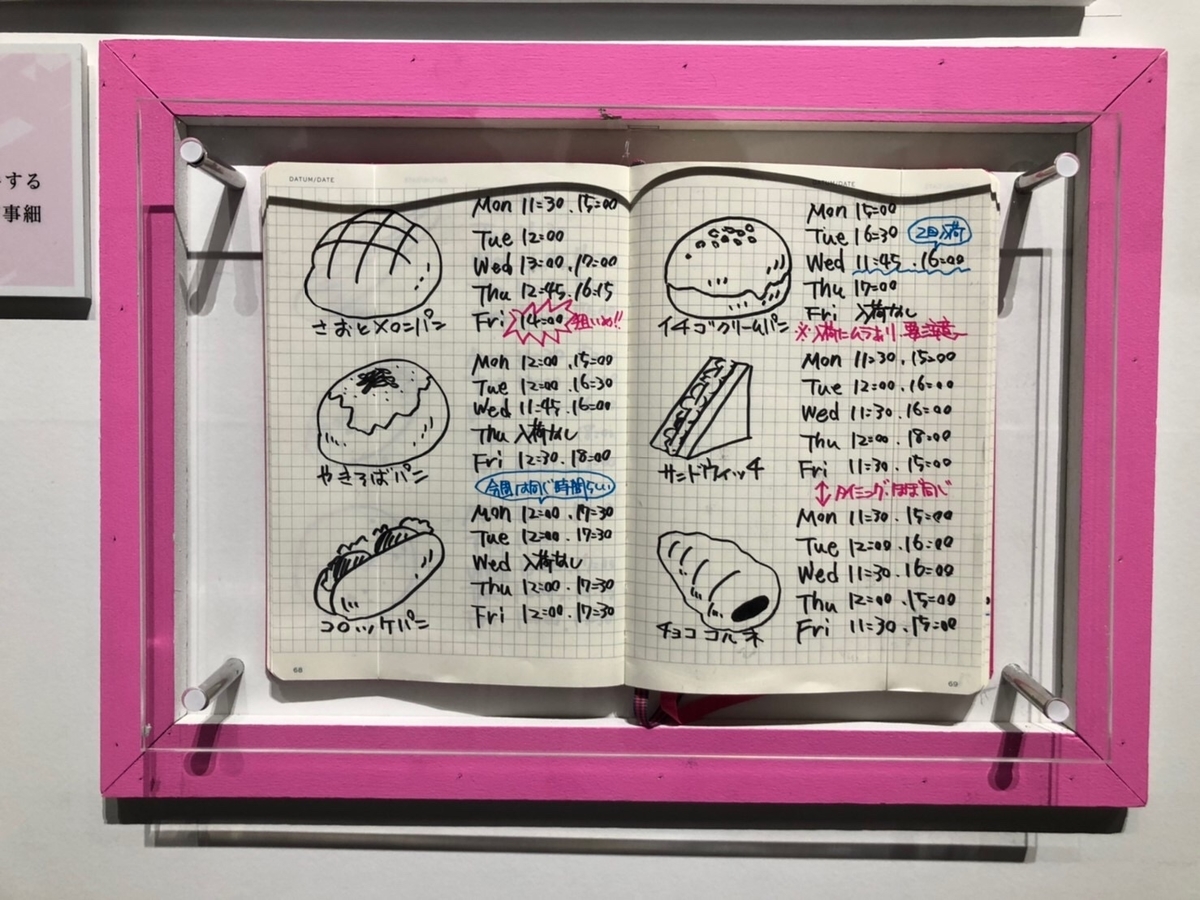 する
事細
DATUM/DATE
Mon 11:30 . 15:00
Tue 12:00
Wed 13:00 . 17:00
Thu 12:45 . 16:15
Fri 14:00 狙いめ!!
さおとメロンパン
Mon 12:00 . 15:00
Tue 12:00 . 16:30
Wed 11:45 . 16:00
Thu 入荷なし
Fri 12:30 . 18:00
やきそばパン
今週は同じ時間らしい
Mon 12:00 . 17:30
Tue 12:00 . 17:30
Wed 入荷なし
Thu 12:00 . 17:30
Fri 12:00 . 17:30
コロッケパン
68
DATUM/DATE
Mon 15:00
Tue 16:30
2回入荷
Wed 11:45 . 16:00
Thu 17:00
Fri 入荷なし
イチゴクリームパン
※入荷にムラあり 要注意
Mon 11:30 . 15:00
Tue 12:00 . 16:00
Wed 11:30 . 16:00
Thu 12:00 . 18:00
Fri 11:30 . 15:00
サンドウィッチ
↕タイミングほぼ同じ
Mon 11:30 . 15:00
Tue 12:00 . 16:00
Wed 11:30 . 16:00
Thu 12:00 . 15:00
Fri 11:30 . 15:00
チョココルネ
69